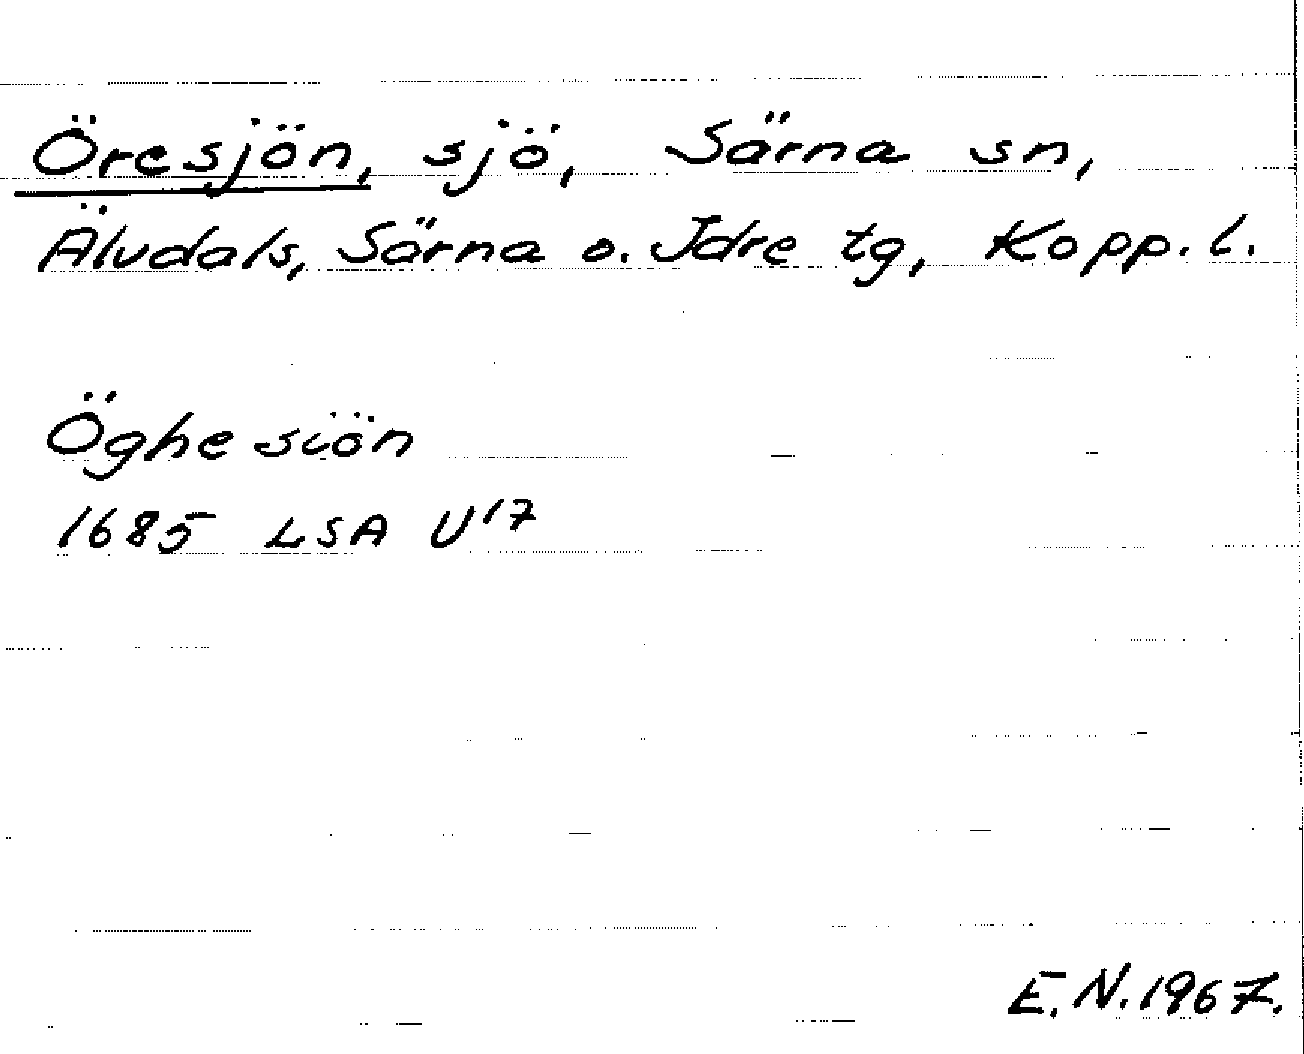 Öresjön, sjö, Särna sn,
Älvdals, Särna o. Idre tg, Kopp. l.
Öghe siön
1685 LSA U¹⁷
E.N. 1967.